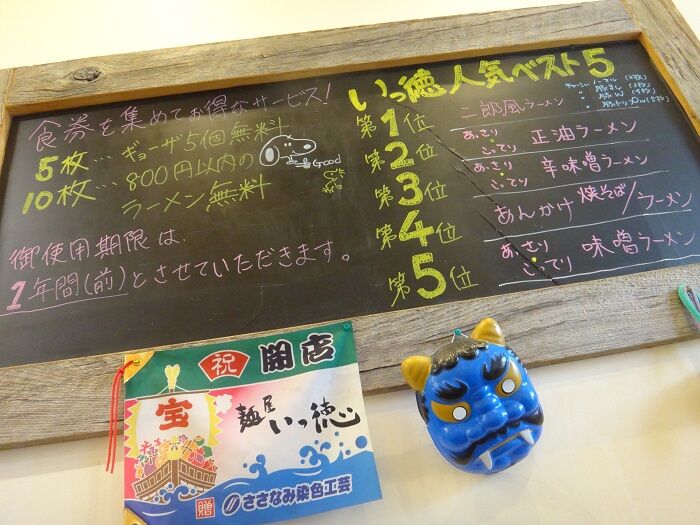 食券を集めてお得なサービス!
5枚…ギョーザ5個無料
10枚…800円以内の
ラーメン無料
Good
御使用期限は、
1年間(前)とさせていただきます。
いっ徳人気ベスト5
第1位 二郎風ラーメン
第2位 あっさり こってり 正油ラーメン
第3位 あっさり こってり 辛味噌ラーメン
第4位 あんかけ焼そば/ラーメン
第5位 あっさり こってり 味噌ラーメン
祝 開店
宝
麺屋 いっ徳
贈 ささなみ染色工芸